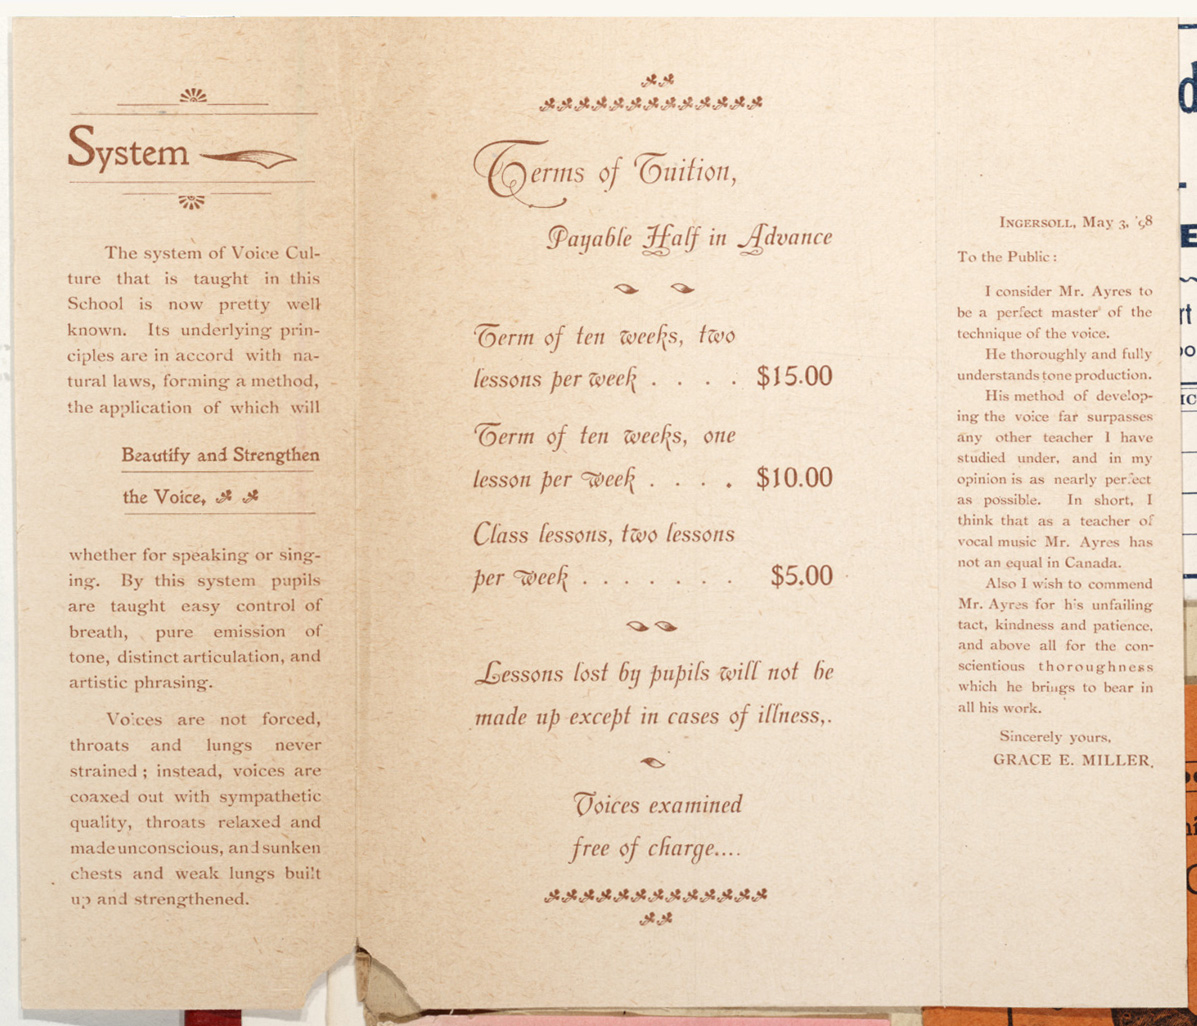 System
The system of Voice Cul-
ture that is taught in this
School is now pretty well
known. Its underlying prin-
ciples are in accord with na-
tural laws, forming a method,
the application of which will
Beautify and Strengthen
the Voice,
whether for speaking or sing-
ing. By this system pupils
are taught easy control of
breath, pure emission of
tone, distinct articulation, and
artistic phrasing.
Voices are not forced,
throats and lungs never
strained; instead, voices are
coaxed out with sympathetic
quality, throats relaxed and
made unconscious, and sunken
chests and weak lungs built
up and strengthened.
Terms of Tuition,
Payable Half in Advance
Term of ten weeks, two
lessons per week . . . . $15.00
Term of ten weeks, one
lesson per week . . . . $10.00
Class lessons, two lessons
per week . . . . . . . $5.00
Lessons lost by pupils will not be
made up except in cases of illness,.
Voices examined
free of charge....
INGERSOLL, May 3, '98
To the Public:
I consider Mr. Ayres to
be a perfect master of the
technique of the voice.
He thoroughly and fully
understands tone production.
His method of develop-
ing the voice far surpasses
any other teacher I have
studied under, and in my
opinion is as nearly perfect
as possible. In short, I
think that as a teacher of
vocal music Mr. Ayres has
not an equal in Canada.
Also I wish to commend
Mr. Ayres for his unfailing
tact, kindness and patience,
and above all for the con-
scientious thoroughness
which he brings to bear in
all his work.
Sincerely yours,
GRACE E. MILLER.